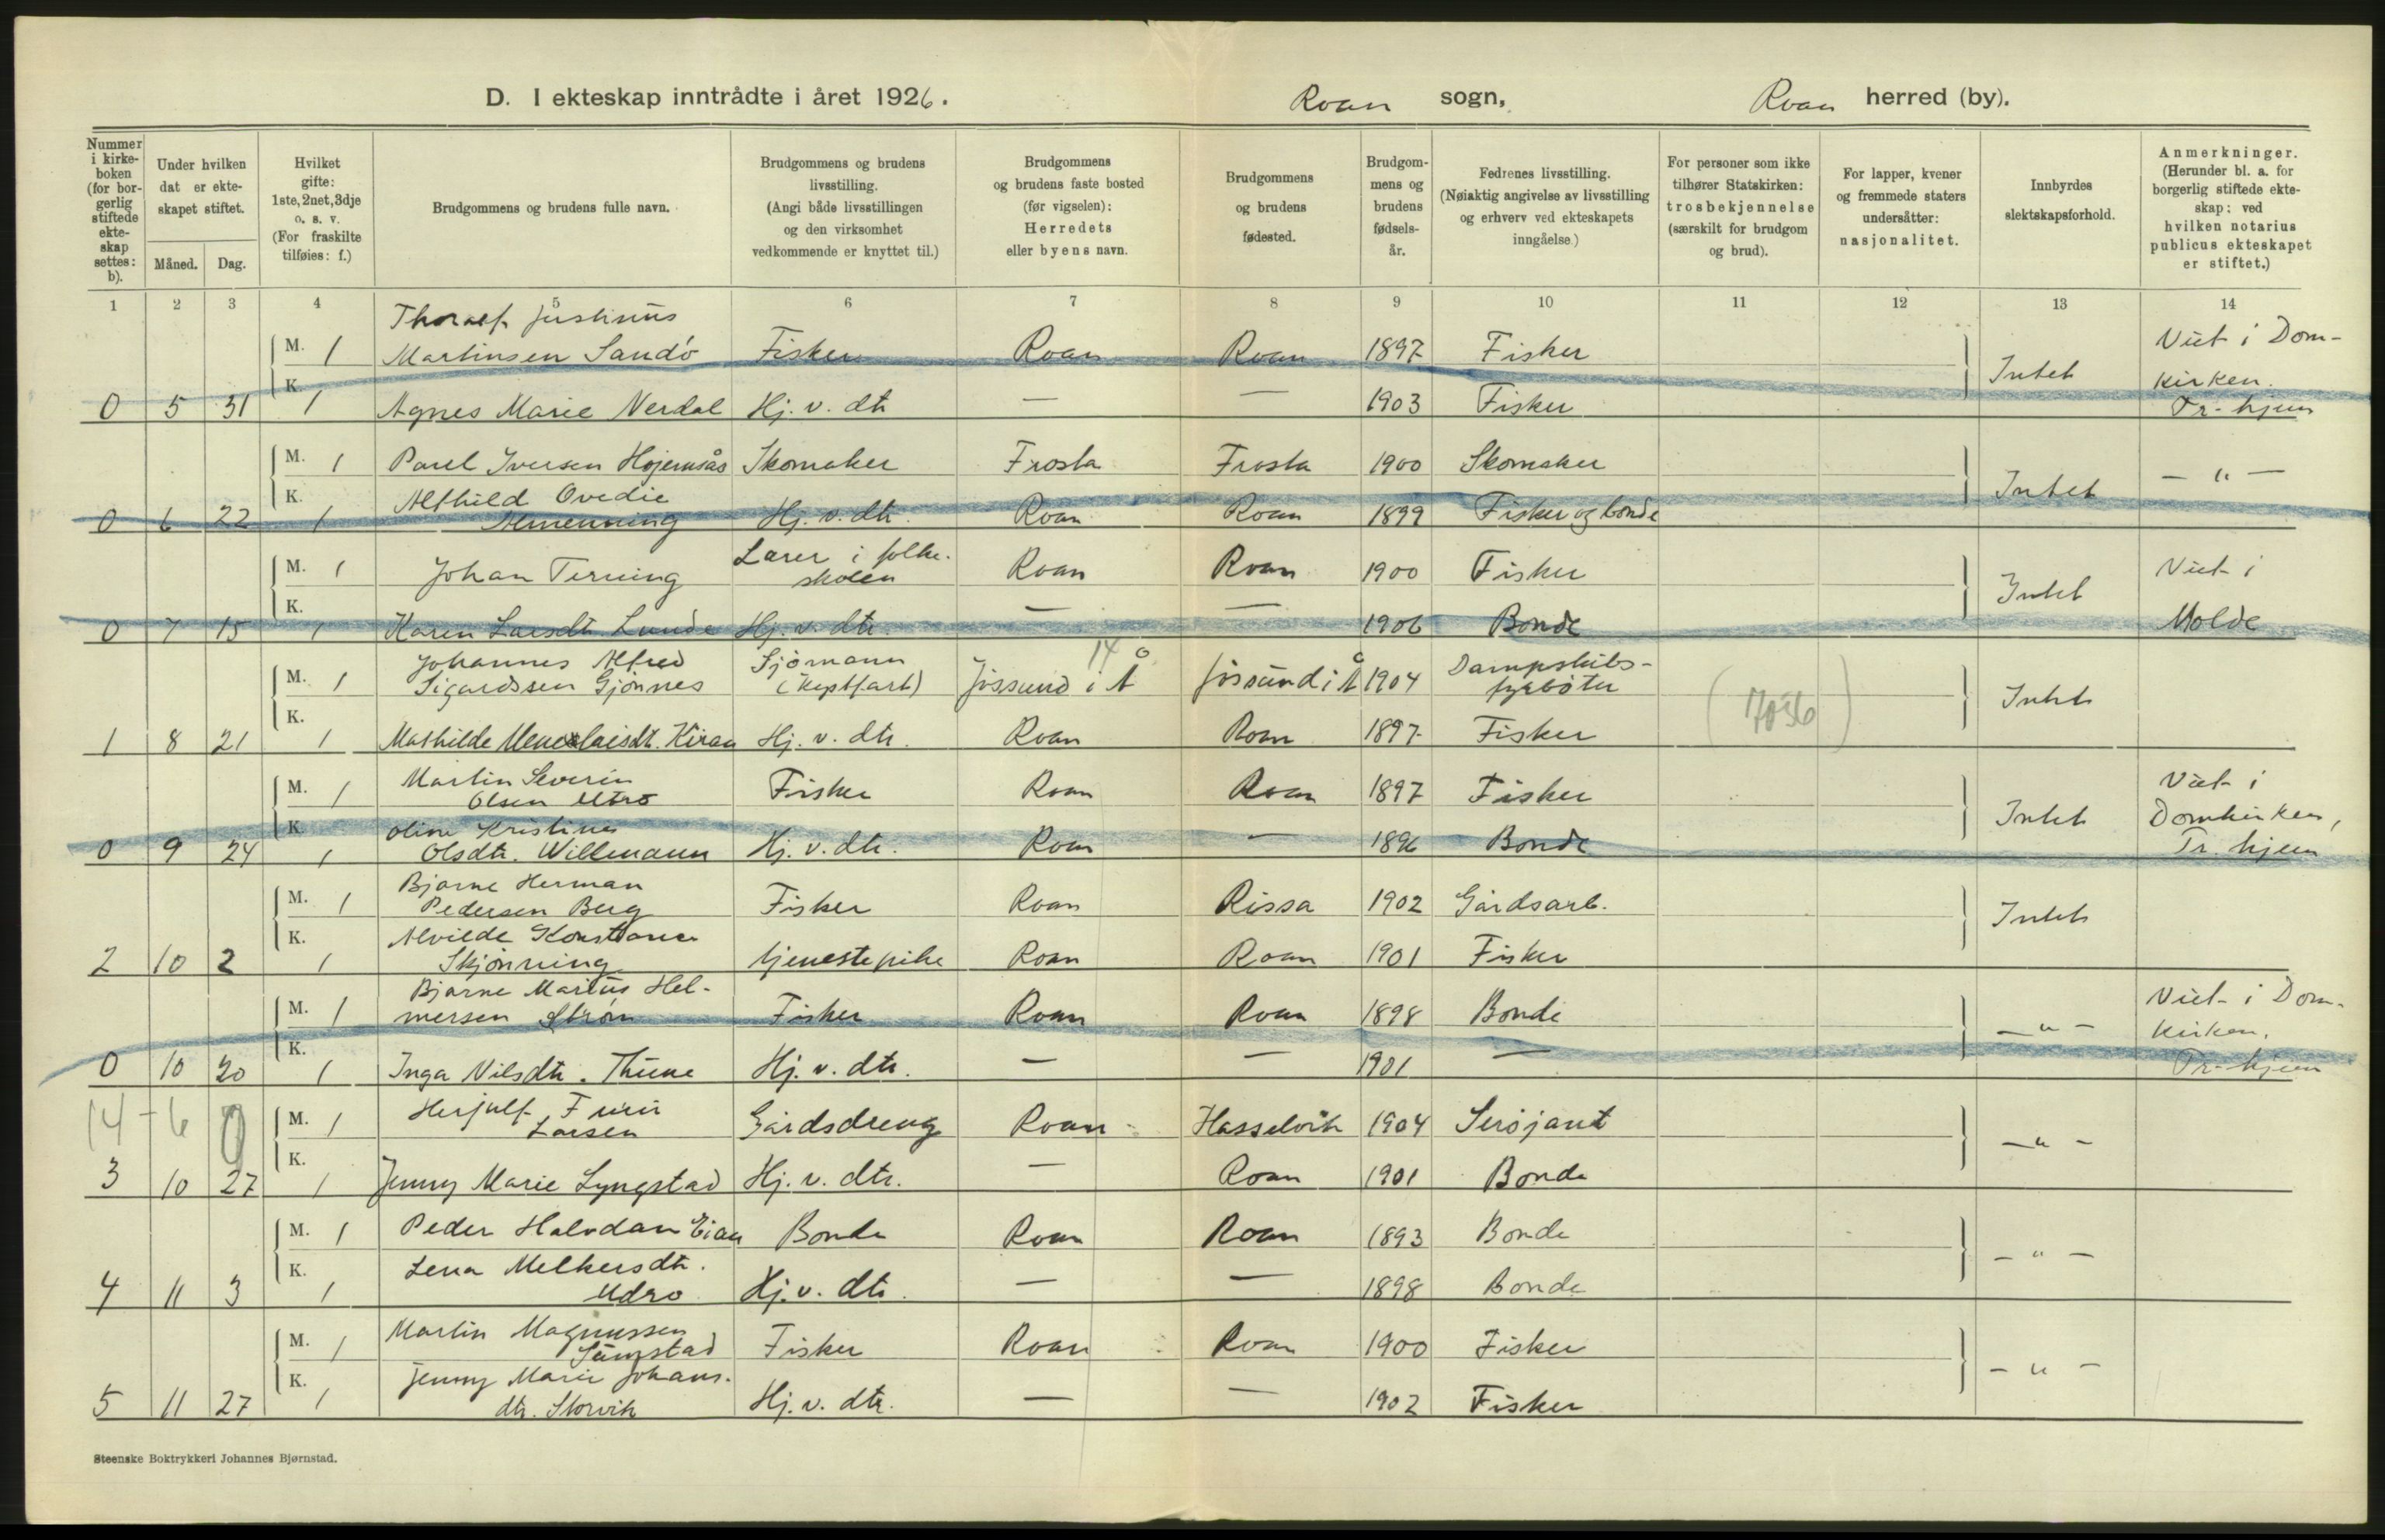 D. I ekteskap inntrådte i året 1926. Roan sogn, Roan herred (by).
Nummer i kirkeboken (for borgerlig stiftede ekteskap settes: b).
Under hvilken dat er ekteskapet stiftet.
Måned. Dag.
Hvilket gifte: 1ste, 2net, 3dje o. s. v. (For fraskilte tilføies: f.)
Brudgommens og brudens fulle navn.
Brudgommens og brudens livsstilling. (Angi både livsstillingen og den virksomhet vedkommende er knyttet til.)
Brudgommens og brudens faste bosted (før vigselen): Herredets eller byens navn.
Brudgommens og brudens fødested.
Brudgommens og brudens fødselsår.
Fedrenes livsstilling. (Nøiaktig angivelse av livsstilling og erhverv ved ekteskapets inngåelse.)
For personer som ikke tilhører Statskirken: trosbekjennelse (særskilt for brudgom og brud).
For lapper, kvener og fremmede staters undersåtter: nasjonalitet.
Innbyrdes slektskapsforhold.
Anmerkninger. (Herunder bl. a. for borgerlig stiftede ekteskap: ved hvilken notarius publicus ekteskapet er stiftet.)
1 2 3 4 5 6 7 8 9 10 11 12 13 14
M. 1 Thoralf Justinus Martinsen Sandö Fisker Roan Roan 1897 Fisker Intet Viet i Domkirken. Tr-hjem
0 5 31 K. 1 Agnes Marie Nerdal Hj. v. dtr — — 1903 Fisker
M. 1 Paul Iversen Hojemsås Skomaker Frosta Frosta 1900 Skomaker Intet — " —
0 6 22 K. 1 Alfhild Ovedie Almenning Hj. v. dtr. Roan Roan 1899 Fisker og bonde
M. 1 Johan Terning Lærer i folkeskolen Roan Roan 1900 Fisker Intet Viet i Molde
0 7 15 K. 1 Karen Larsdtr Lunde Hj. v. dtr. — — 1906 Bonde
M. 1 Johannes Alfred Sigurdssen Gjönnes Sjömann (kystfart) Jössund i Å 14 Jössund i Å 1904 Dampskibsfyrböter (7036) Intet
1 8 21 K. 1 Mathilde Menelaisdt. Kiran Hj. v. dtr. Roan Roan 1897 Fisker
M. 1 Martin Severin Olsen Utro Fisker Roan Roan 1897 Fisker Intet Viet i Domkirken, Tr. hjem
0 9 24 K. 1 Oline Kristine Olsdtr. Willmann Hj. v. dtr. Roan — 1896 Bonde
M. 1 Bjarne Herman Pedersen Berg Fisker Roan Rissa 1902 Gårdsarb. Intet
2 10 2 K. 1 Alvilde Konstanse Skjönning tjenestepike Roan Roan 1901 Fisker
M. 1 Bjarne Marius Helmersen Ström Fisker Roan Roan 1898 Bonde — " — Viet i Domkirken. Tr-hjem
0 10 20 K. 1 Inga Nilsdtr. Thune Hj. v. dtr. — — 1901 —
14 - 6 0
M. 1 Herjulf Larsen Gårdsdreng Roan Hasselvik 1904 Sersjant — " —
3 10 27 K. 1 Jenny Marie Lyngstad Hj. v. dtr. — Roan 1901 Bonde
M. 1 Peder Halvdan Eian Bonde Roan Roan 1893 Bonde — " —
4 11 3 K. 1 Lena Melkersdtr. Udro Hj. v. dtr. — — 1898 Bonde
M. 1 Martin Magnussen Sumstad Fisker Roan Roan 1900 Fisker — " —
5 11 27 K. 1 Jenny Marie Johansdtr. Storvik Hj. v. dtr. — — 1902 Fisker
Steenske Boktrykkeri Johannes Bjørnstad.